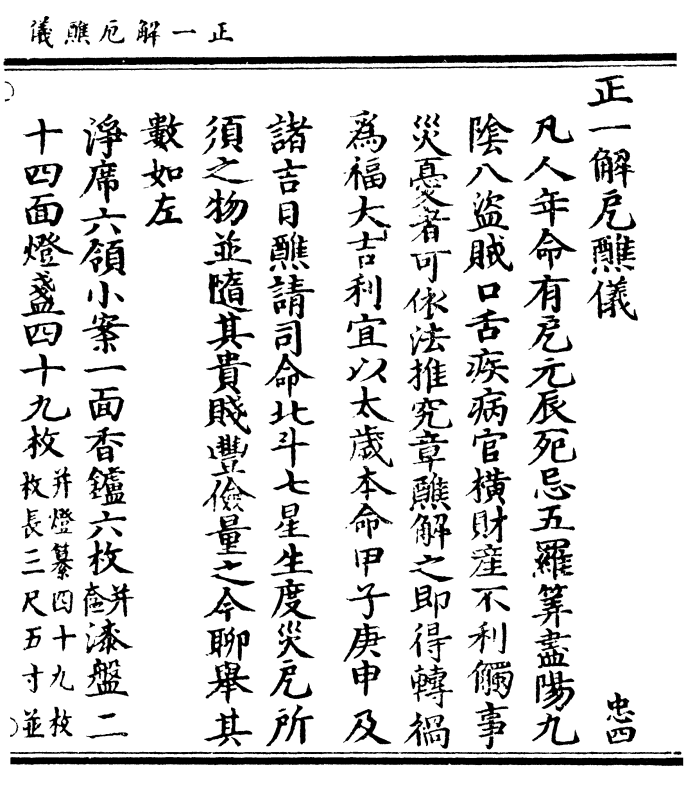 正一解厄醮儀
正一解厄醮儀
忠四
凡人年命有厄元辰死忌五羅筭盡陽九
陰八盜賊口舌疾病官橫財產不利觸事
災憂者可依法推究章醮解之即得轉禍
爲福大吉利宜以太歲本命甲子庚申及
諸吉日醮請司命北斗七星生度災厄所
須之物並隨其貴賤豐儉量之今聊舉其
數如左
淨席六領小案一面香鑪六枚并奩漆盤二
十四面燈盞四十九枚并燈纂四十九枚
枚長三尺五寸並